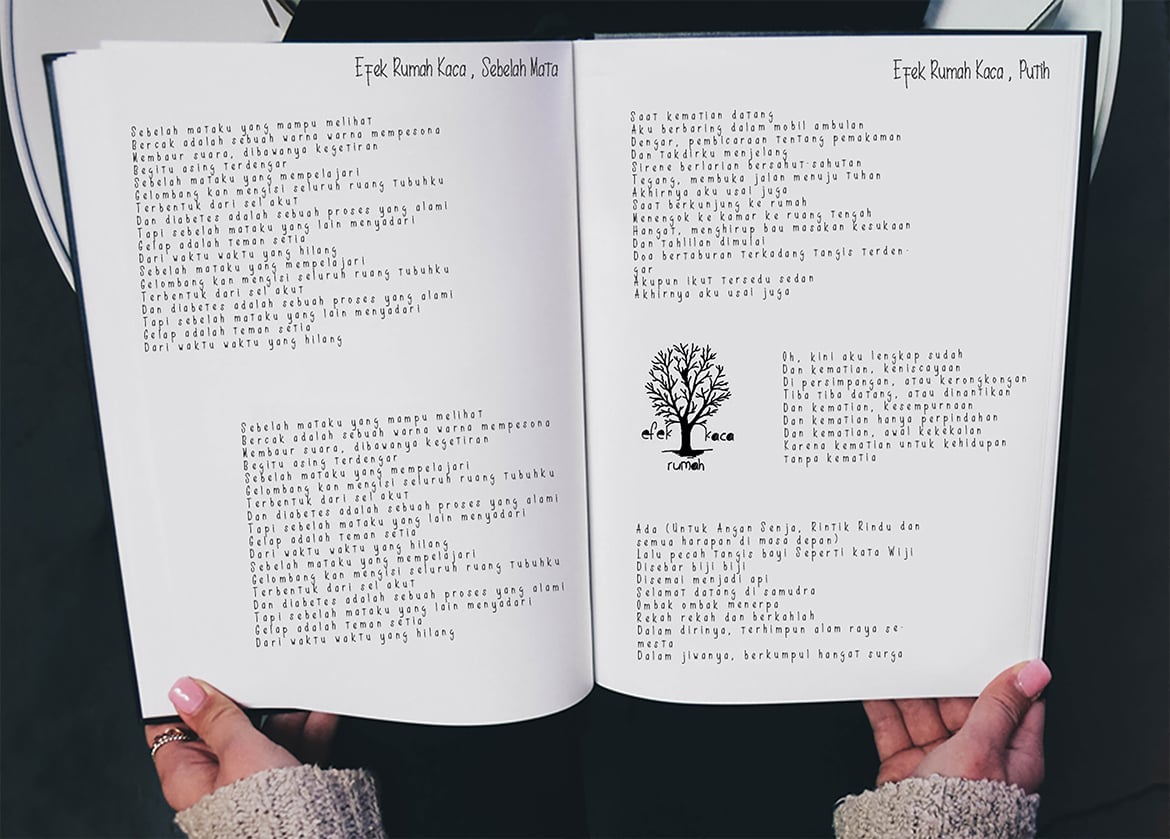 Efek Rumah Kaca , Sebelah Mata
Sebelah mataku yang mampu melihat
Bercak adalah sebuah warna warna mempesona
Membaur suara, dibawanya kegetiran
Begitu asing terdengar
Sebelah mataku yang mempelajari
Gelombang kan mengisi seluruh ruang tubuhku
Terbentuk dari sel akut
Dan diabetes adalah sebuah proses yang alami
Tapi sebelah mataku yang lain menyadari
Gelap adalah teman setia
Dari waktu waktu yang hilang
Sebelah mataku yang mempelajari
Gelombang kan mengisi seluruh ruang tubuhku
Terbentuk dari sel akut
Dan diabetes adalah sebuah proses yang alami
Tapi sebelah mataku yang lain menyadari
Gelap adalah teman setia
Dari waktu waktu yang hilang
Sebelah mataku yang mampu melihat
Bercak adalah sebuah warna warna mempesona
Membaur suara, dibawanya kegetiran
Begitu asing terdengar
Sebelah mataku yang mempelajari
Gelombang kan mengisi seluruh ruang tubuhku
Terbentuk dari sel akut
Dan diabetes adalah sebuah proses yang alami
Tapi sebelah mataku yang lain menyadari
Gelap adalah teman setia
Dari waktu waktu yang hilang
Sebelah mataku yang mempelajari
Gelombang kan mengisi seluruh ruang tubuhku
Terbentuk dari sel akut
Dan diabetes adalah sebuah proses yang alami
Tapi sebelah mataku yang lain menyadari
Gelap adalah teman setia
Dari waktu waktu yang hilang
Efek Rumah Kaca , Putih
Saat kematian datang
Aku berbaring dalam mobil ambulan
Dengar, pembicaraan tentang pemakaman
Dan takdirku menjelang
Sirene berlarian bersahut-sahutan
Tegang, membuka jalan menuju Tuhan
Akhirnya aku usai juga
Saat berkunjung ke rumah
Menengok ke kamar ke ruang tengah
Hangat, menghirup bau masakan kesukaan
Dan tahlilan dimulai
Doa bertaburan terkadang tangis terden-
gar
Akupun ikut tersedu sedan
Akhirnya aku usai juga
efek kaca
rumah
Oh, kini aku lengkap sudah
Dan kematian, keniscayaan
Di persimpangan, atau kerongkongan
Tiba tiba datang, atau dinantikan
Dan kematian, kesempurnaan
Dan kematian hanya perpindahan
Dan kematian, awal kekekalan
Karena kematian untuk kehidupan
tanpa kematia
Ada (Untuk Angan Senja, Rintik Rindu dan
semua harapan di masa depan)
Lalu pecah tangis bayi Seperti kata Wiji
Disebar biji biji
Disemai menjadi api
Selamat datang di samudra
Ombak ombak menerpa
Rekah rekah dan berkahlah
Dalam dirinya, terhimpun alam raya se-
mesta
Dalam jiwanya, berkumpul hangat surga